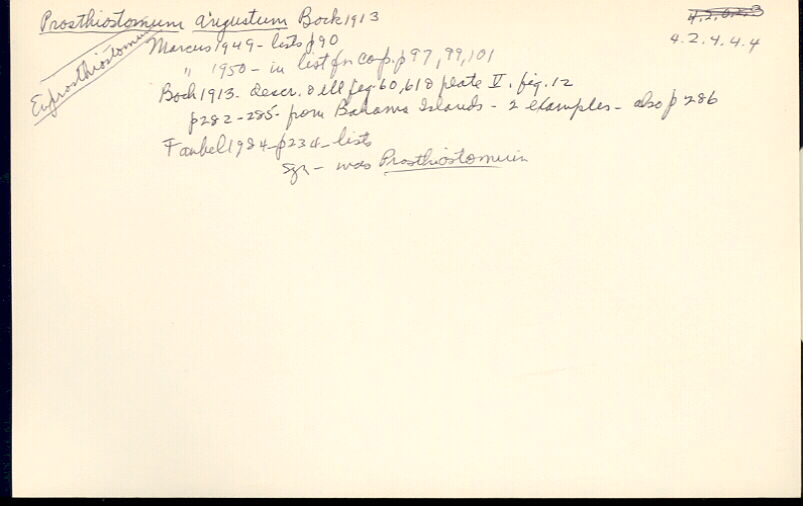 Prosthiostomum angustum Bock 1913
4.2.6.2.3
4.2.4.4.4
Euprosthiostomum
Marcus 1949 - lists p90
" 1950 - in list for comp. p97, 99, 101
Bock 1913 - descr. & ill fig 60, 61 & plate V. fig. 12
p282-285 - from Bahama Islands - 2 examples - also p 286
Faubel 1984 - p234 - lists
syn - was Prosthiostomum